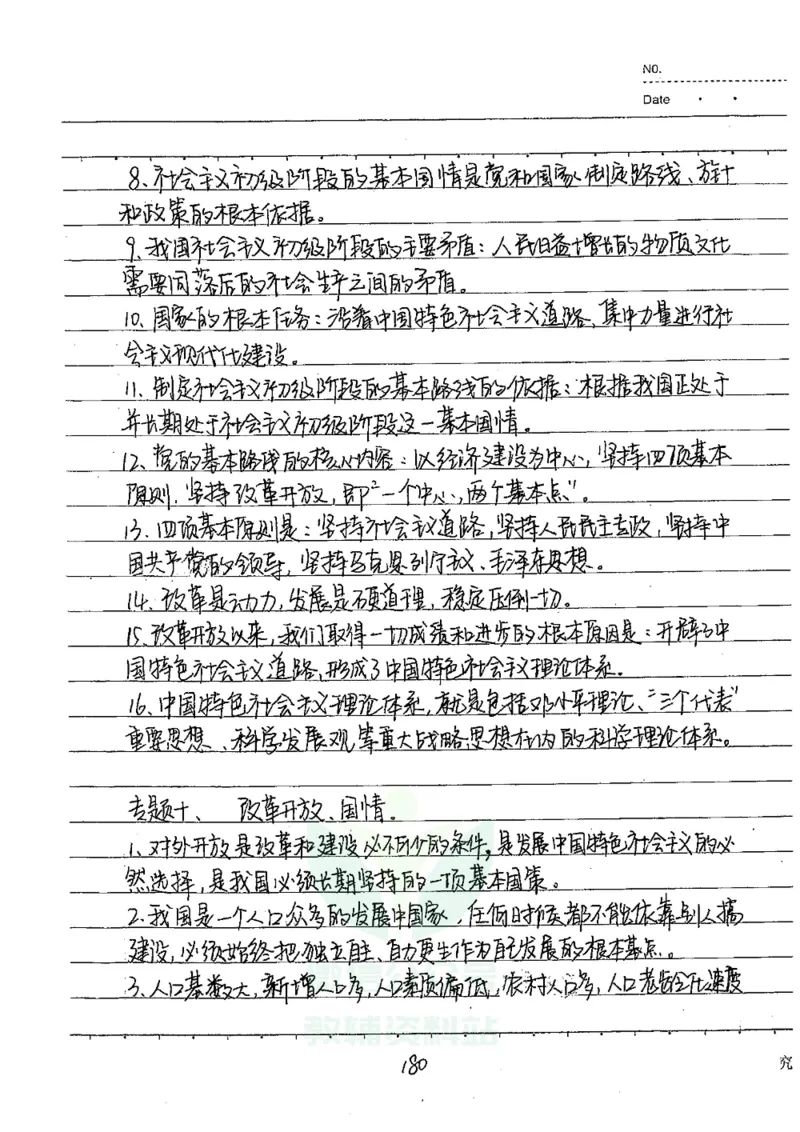 NO.
Date
8、社会主义初级阶段的基本国情是党和国家制定路线、方针
和政策的根本依据。
9、我国社会主义初级阶段的主要矛盾:人民日益增长的物质文化
需要同落后的社会生产之间的矛盾。
10、国家的根本任务:沿着中国特色社会主义道路、集中力量进行社
会主义现代化建设。
11、制定社会主义初级阶段的基本路线的依据:根据我国正处于
并长期处于社会主义初级阶段这一基本国情。
12、党的基本路线的核心内容:以经济建设为中心,坚持四项基本
原则.坚持改革开放,即“一个中心,两个基本点”。
13、四项基本原则是:坚持社会主义道路,坚持人民民主专政,坚持中
国共产党的领导,坚持马克思列宁主义、毛泽东思想。
14、改革是动力,发展是硬道理,稳定压倒一切。
15、改革开放以来,我们取得一切成绩和进步的根本原因是:开辟了中
国特色社会主义道路,形成了中国特色社会主义理论体系。
16、中国特色社会主义理论体系,就是包括邓小平理论、“三个代表”
重要思想、科学发展观等重大战略思想在内的科学理论体系。
专题十、 改革开放、国情。
1、对外开放是改革和建设必不可少的条件,是发展中国特色社会主义的必
然选择,是我国必须长期坚持的一项基本国策。
2、我国是一个人口众多的发展中国家,任何时候都不能依靠别人搞
建设,必须始终把独立自主、自力更生作为自己发展的根本基点。
3、人口基数大,新增人口多,人口素质偏低,农村人口多,人口老龄化速度
教辅资料站
180
究